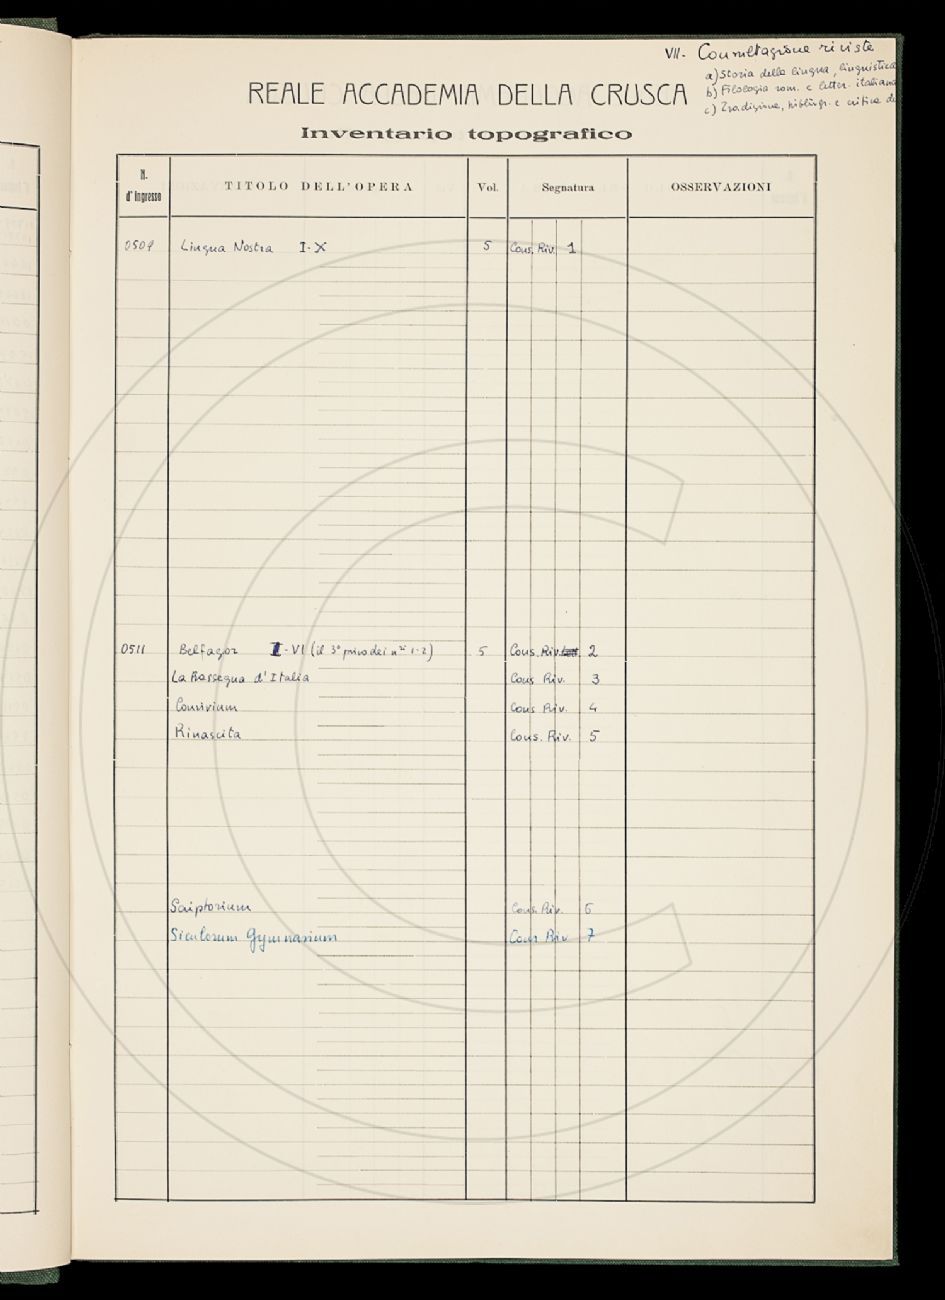 VII- Consultazione riviste
a) Storia della lingua, linguistica
b) Filologia rom. e letter. italiana
c) Tradizione, bibliogr. e critica de
REALE ACCADEMIA DELLA CRUSCA
Inventario topografico
N. d'Ingresso TITOLO DELL'OPERA Vol. Segnatura OSSERVAZIONI
0509 Lingua Nostra I-X 5 Cons. Riv. 1
0511 Belfagor I-VI (il 3° privo dei nri 1-2) 5 Cons. Riv. 2
La Rassegna d'Italia Cons Riv. 3
Convivium Cons Riv. 4
Rinascita Cons. Riv. 5
Scriptorium Cons. Riv. 6
Siculorum Gymnasium Cons Riv 7